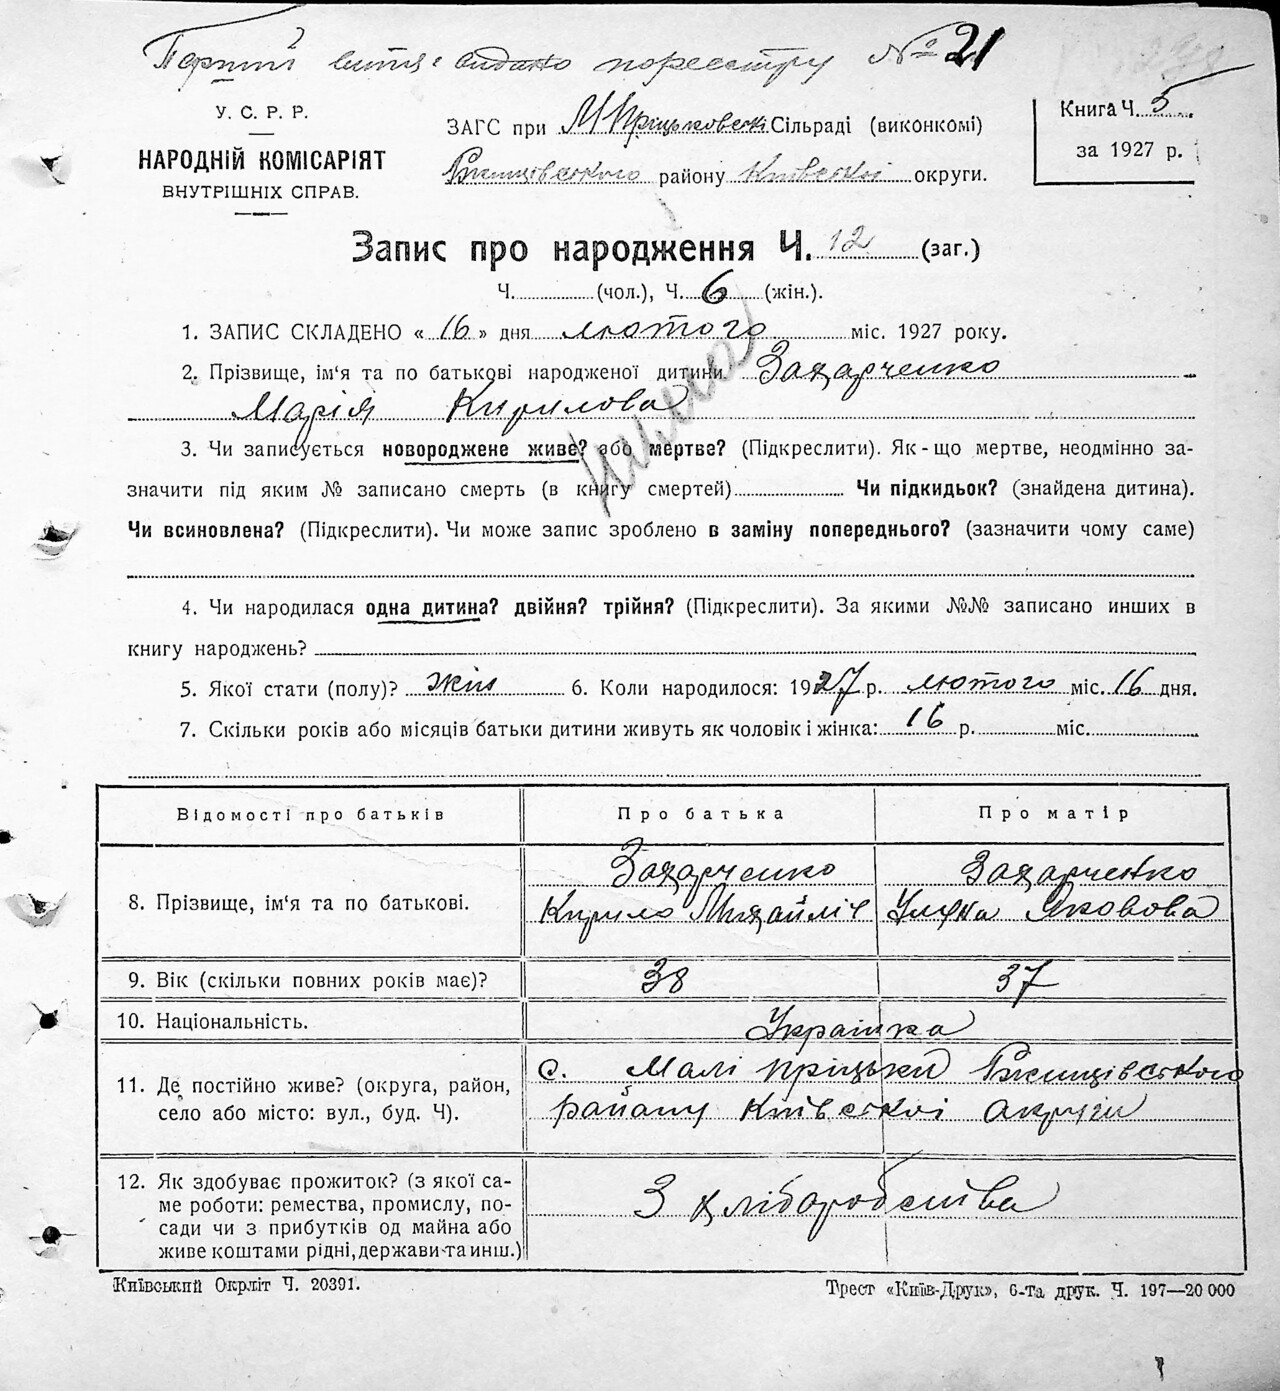 Перший витяг видано по реєстру № 21
У. С. Р. Р.
НАРОДНІЙ КОМІСАРІЯТ
ВНУТРІШНІХ СПРАВ.
ЗАГС при М Пріцьковській Сільраді (виконкомі)
Ржищівського району Київської округи.
Книга Ч. 5
за 1927 р.
Запис про народження Ч. 12 (заг.)
Ч. (чол.), Ч. 6 (жін.).
1. ЗАПИС СКЛАДЕНО « 16 » дня лютого міс. 1927 року.
2. Прізвище, ім'я та по батькові народженої дитини Захарченко
Марія Кирилова
3. Чи записується новороджене живе? або мертве? (Підкреслити). Як-що мертве, неодмінно за-
значити під яким № записано смерть (в книгу смертей) Чи підкидьок? (знайдена дитина).
Чи всиновлена? (Підкреслити). Чи може запис зроблено в заміну попереднього? (зазначити чому саме)
4. Чи народилася одна дитина? двійня? трійня? (Підкреслити). За якими №№ записано инших в
книгу народжень?
5. Якої стати (полу)? жін 6. Коли народилося: 1927 р. лютого міс. 16 дня.
7. Скільки років або місяців батьки дитини живуть як чоловік і жінка: 16 р. міс.
Відомості про батьків Про батька Про матір
8. Прізвище, ім'я та по батькові.
Захарченко
Кирило Михайліч
Захарченко
Уляна Яковова
9. Вік (скільки повних років має)? 38 37
10. Національність. Українка
11. Де постійно живе? (округа, район,
село або місто: вул., буд. Ч).
с. Малі пріцьки Ржищівського
району Київської округи
12. Як здобуває прожиток? (з якої са-
ме роботи: ремества, промислу, по-
сади чи з прибутків од майна або
живе коштами рідні, держави та инш.)
З хліборобства
Київський Окрліт Ч. 20391.
Трест «Київ-Друк», 6-та друк. Ч. 197—20 000